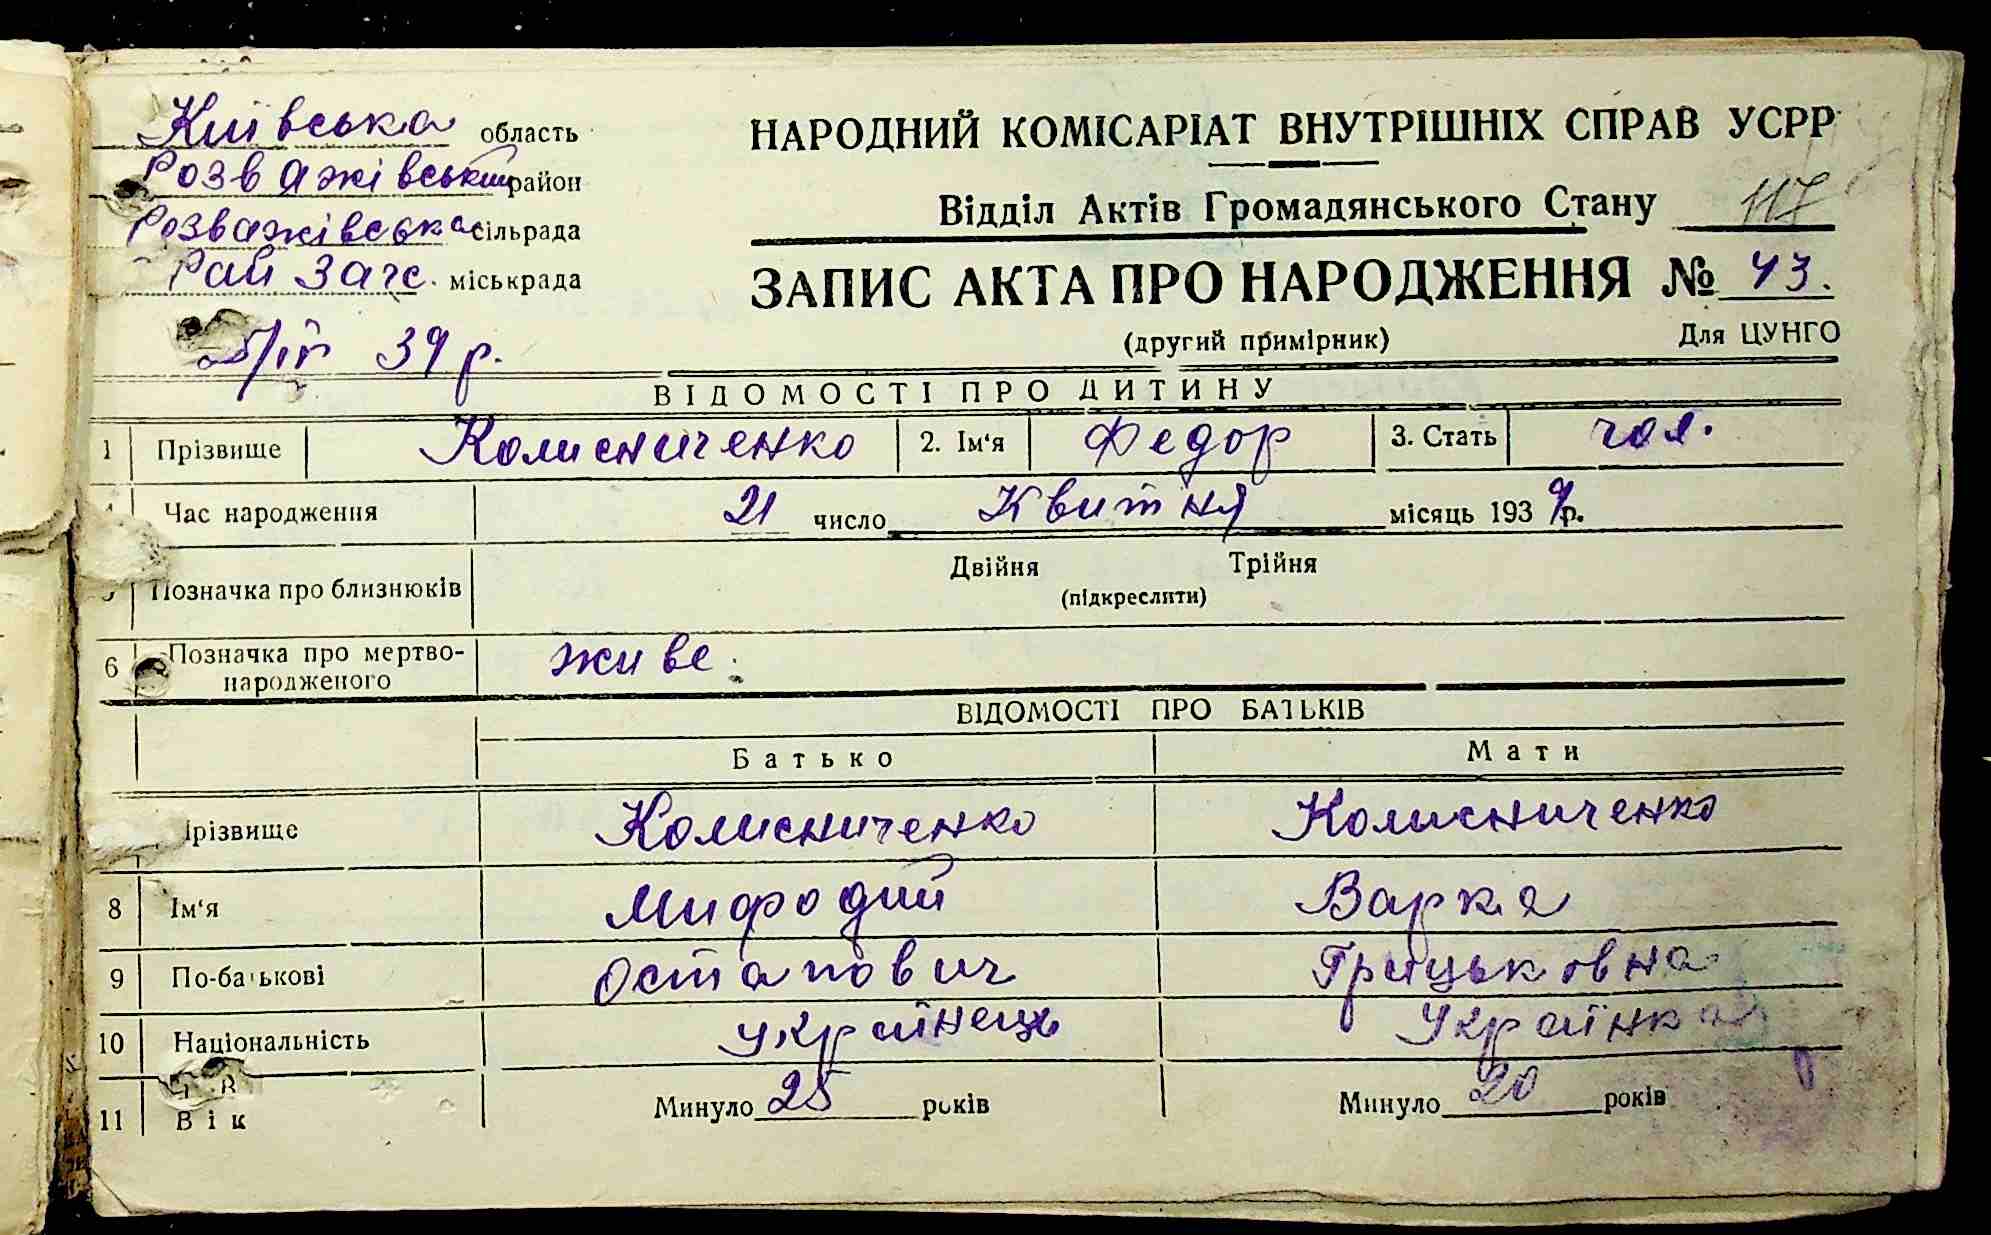 Київська область
Розважівський район
Розважівська сільрада
Рай Загс. міськрада
39 р.
НАРОДНИЙ КОМІСАРІАТ ВНУТРІШНІХ СПРАВ УСРР
Відділ Актів Громадянського Стану 117
ЗАПИС АКТА ПРО НАРОДЖЕННЯ № 43.
(другий примірник) Для ЦУНГО
ВІДОМОСТІ ПРО ДИТИНУ
1 Прізвище Колисниченко 2. Ім‘я Федор 3. Стать чол.
Час народження 21 число Квитня місяць 1939 р.
Позначка про близнюків Двійня Трійня
(підкреслити)
6 Позначка про мертво-
народженого живе.
ВІДОМОСТІ ПРО БАТЬКІВ
Батько Мати
Прізвище Колисниченко Колисниченко
8 Ім‘я Мифодий Варка
9 По-батькові Остапович Грицьковна
10 Національність Українець Українка
11 Вік Минуло 25 років Минуло 20 років